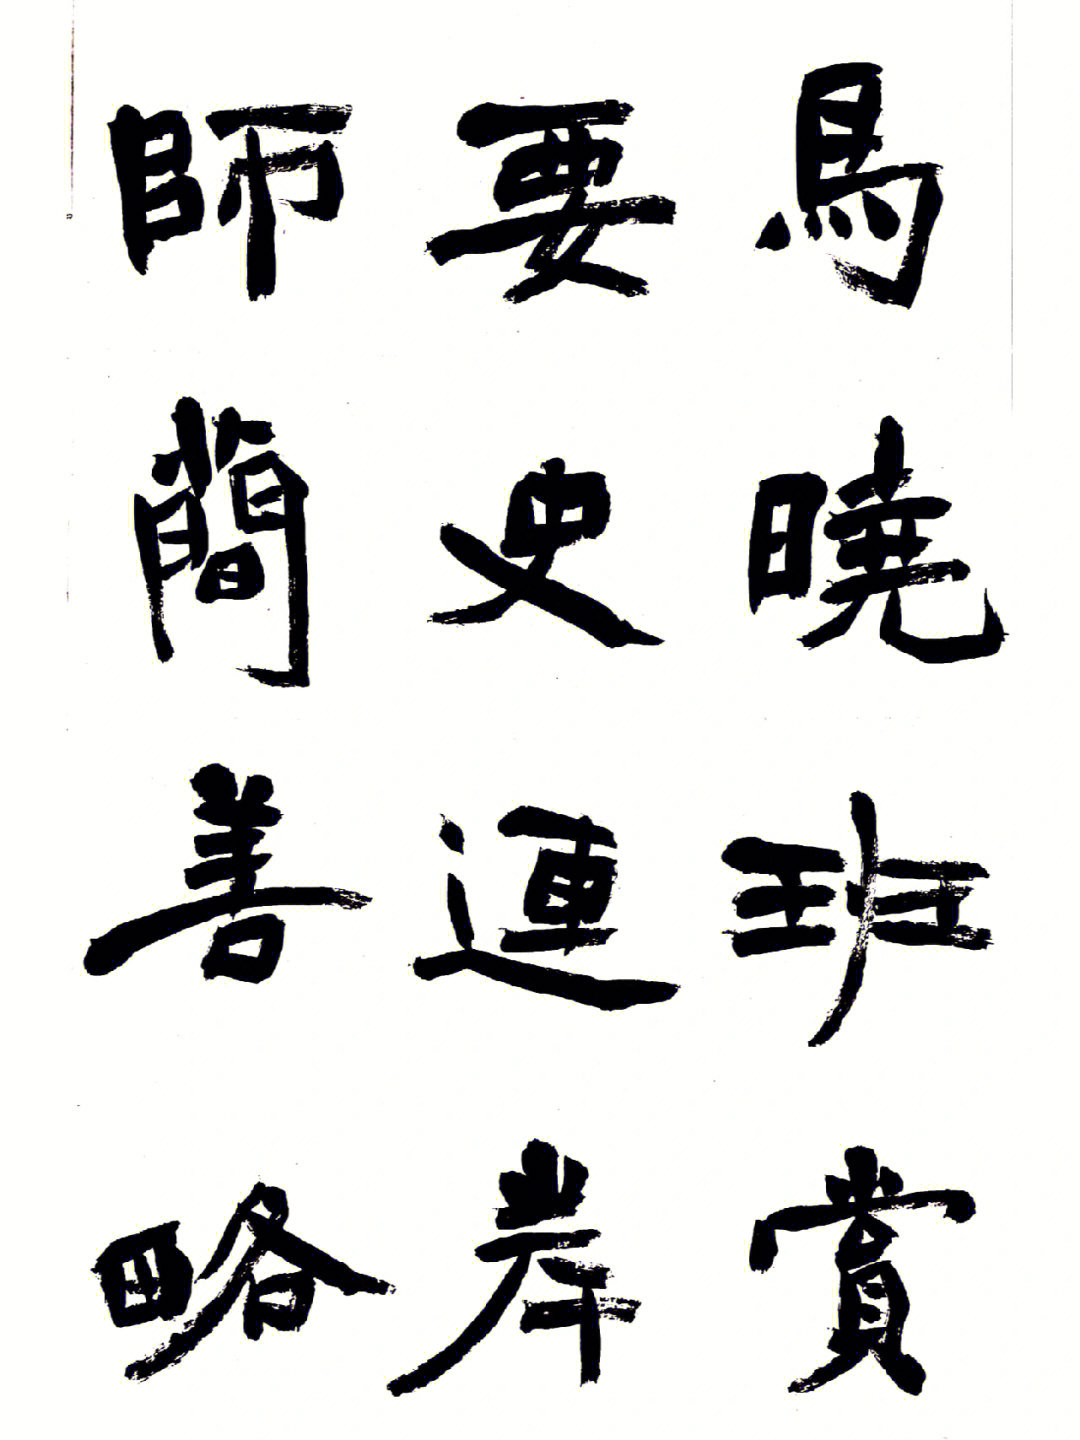 鳥曉班賞
要史運岸
師簡善略